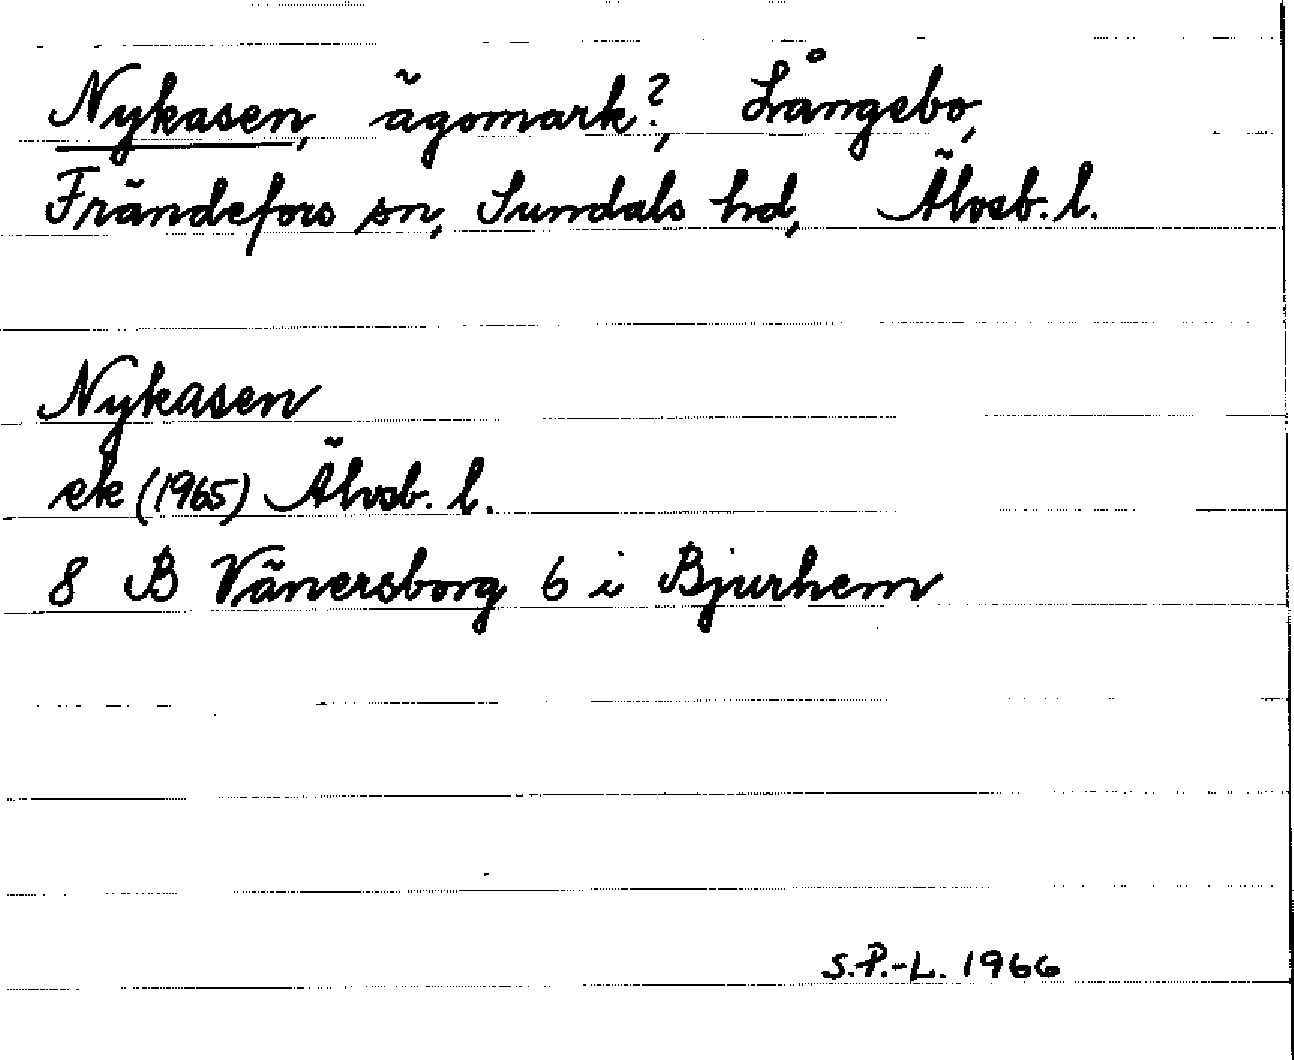 Nykasen, ägomark?, Långebo,
Frändefors sn, Sundals hd, Älvsb. l.
Nykasen
ek (1965) Älvsb. l.
8 B Vänersborg 6 i Bjurhem
S.P.-L. 1966